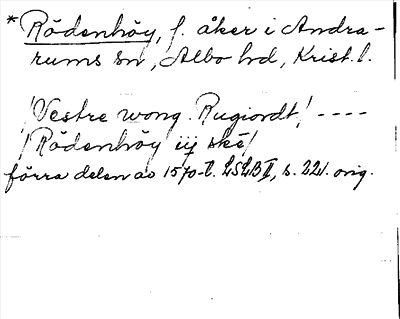 *Rödenhöy, f. åker i Andra-
rums sn, Albo hd, Krist. l.
/Vestre wong. Rugiordt/ ----
/Rödenhöy iij ske/
förra delen av 1570-t. LSLB II, s. 221. orig.